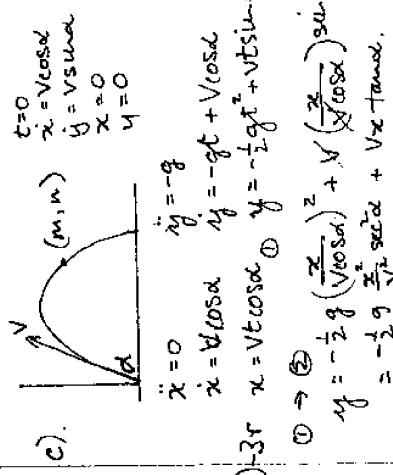 c).
V
(m, n)
α
t=0
ẋ = Vcosα
ẏ = Vsinα
x=0
y=0
ẍ = 0 ÿ = -g
ẋ = Vcosα ẏ = -gt + Vcosα
)-3r x = Vtcosα ① y = -½gt² + Vtsin
① → ②
y = -½ g (x/Vcosα)² + V (x/Vcosα) sin
= -½ g x²/V² sec²α + Vx tanα.